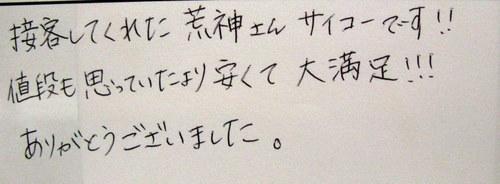 接客してくれた 荒神さん サイコーでーす!!
値段も思っていたより安くて 大満足!!!
ありがとうございました。